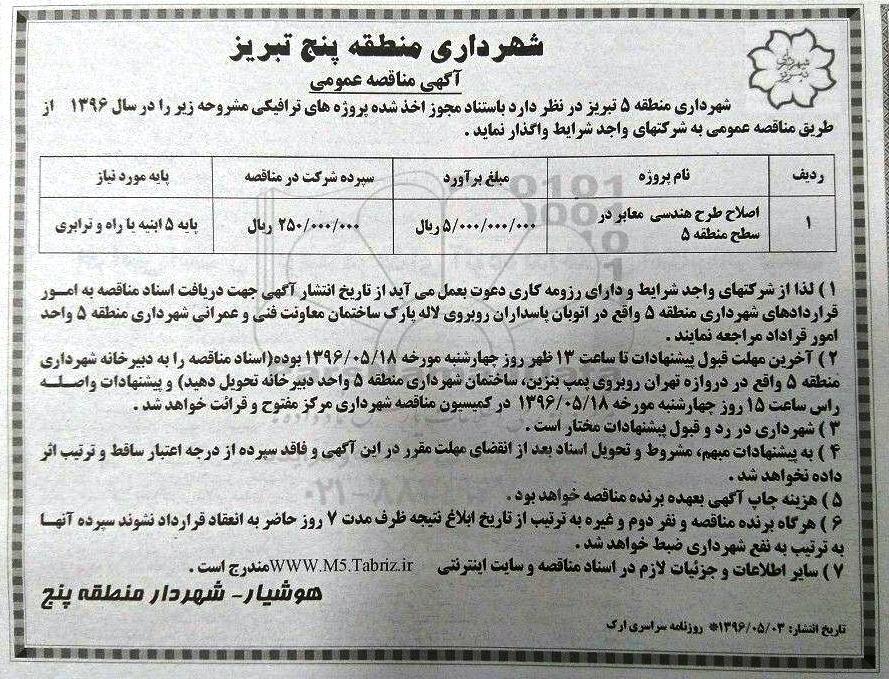 شهرداری منطقه پنج تبریز
آگهی مناقصه عمومی
شهرداری تبریز
شهرداری منطقه ۵ تبریز در نظر دارد باستناد مجوز اخذ شده پروژه های ترافیکی مشروحه زیر را در سال ۱۳۹۶ از
طریق مناقصه عمومی به شرکتهای واجد شرایط واگذار نماید .
ردیف نام پروژه مبلغ برآورد سپرده شرکت در مناقصه پایه مورد نیاز
۱ اصلاح طرح هندسی معابر در ۵/۰۰۰/۰۰۰/۰۰۰ ریال ۲۵۰/۰۰۰/۰۰۰ ریال پایه ۵ ابنیه یا راه و ترابری
سطح منطقه ۵
۱ ) لذا از شرکتهای واجد شرایط و دارای رزومه کاری دعوت بعمل می آید از تاریخ انتشار آگهی جهت دریافت اسناد مناقصه به امور
قراردادهای شهرداری منطقه ۵ واقع در اتوبان پاسداران روبروی لاله پارک ساختمان معاونت فنی و عمرانی شهرداری منطقه ۵ واحد
امور قراداد مراجعه نمایند .
۲ ) آخرین مهلت قبول پیشنهادات تا ساعت ۱۳ ظهر روز چهارشنبه مورخه ۱۳۹۶/۰۵/۱۸ بوده(اسناد مناقصه را به دبیرخانه شهرداری
منطقه ۵ واقع در دروازه تهران روبروی پمپ بنزین، ساختمان شهرداری منطقه ۵ واحد دبیرخانه تحویل دهید) و پیشنهادات واصله
راس ساعت ۱۵ روز چهارشنبه مورخه ۱۳۹۶/۰۵/۱۸ در کمیسیون مناقصه شهرداری مرکز مفتوح و قرائت خواهد شد .
۳ ) شهرداری در رد و قبول پیشنهادات مختار است .
۴ ) به پیشنهادات مبهم، مشروط و تحویل اسناد بعد از انقضای مهلت مقرر در این آگهی و فاقد سپرده از درجه اعتبار ساقط و ترتیب اثر
داده نخواهد شد .
۵ ) هزینه چاپ آگهی بعهده برنده مناقصه خواهد بود .
۶ ) هرگاه برنده مناقصه و نفر دوم و غیره به ترتیب از تاریخ ابلاغ نتیجه ظرف مدت ۷ روز حاضر به انعقاد قرارداد نشوند سپرده آنها
به ترتیب به نفع شهرداری ضبط خواهد شد .
۷ ) سایر اطلاعات و جزئیات لازم در اسناد مناقصه و سایت اینترنتی WWW.M5.Tabriz.ir مندرج است .
هوشیار- شهردار منطقه پنج
تاریخ انتشار: ۱۳۹۶/۰۵/۰۳* روزنامه سراسری ارک